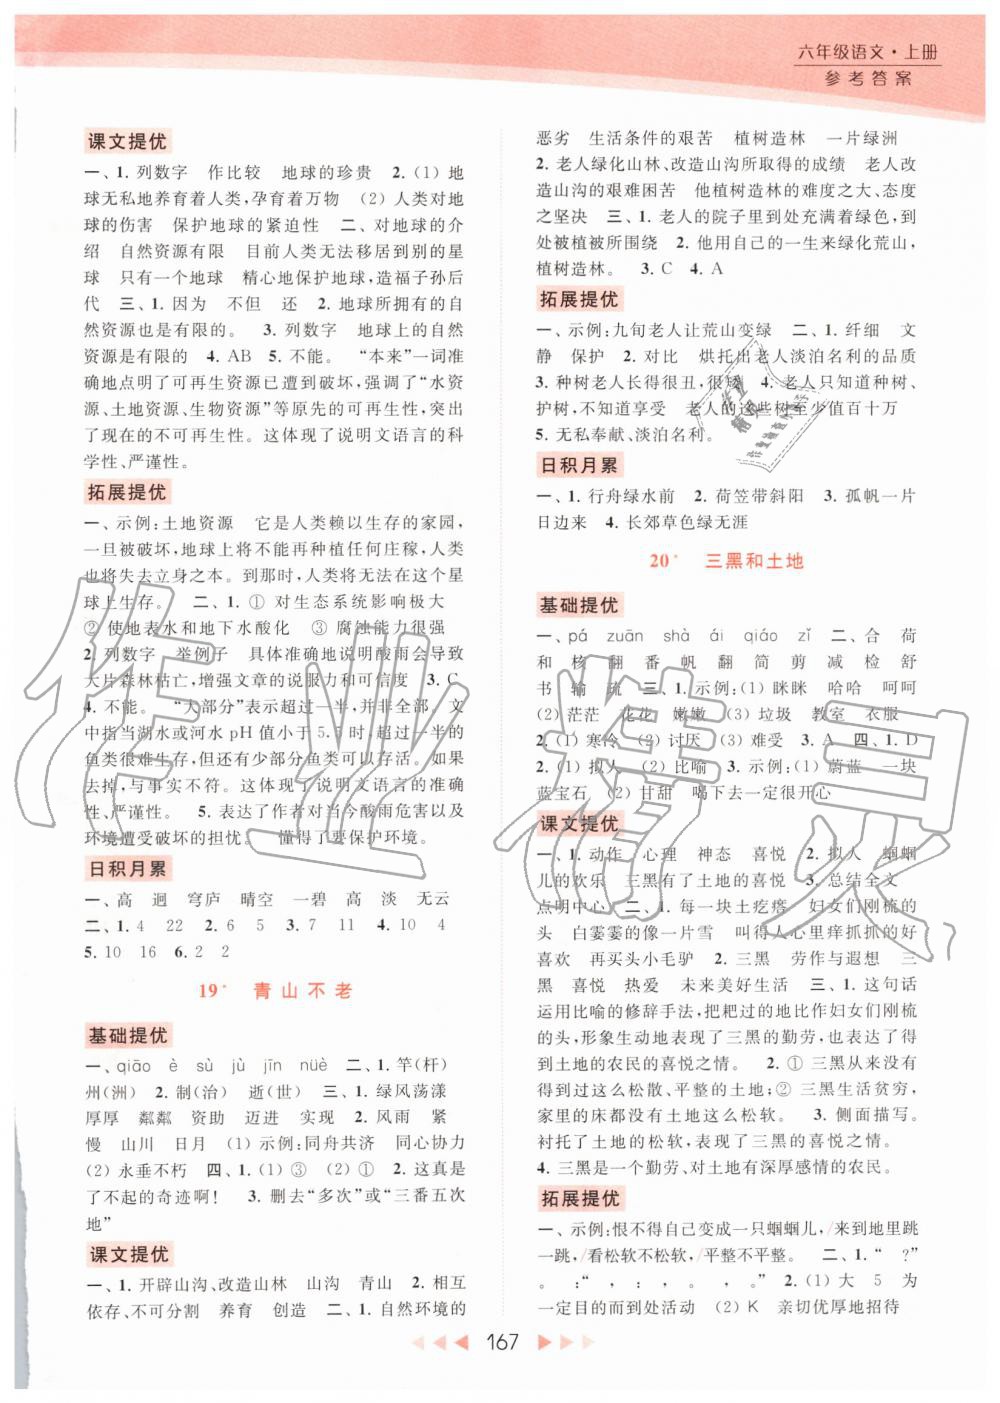 六年级语文·上册
参考答案
课文提优
一、1. 列数字 作比较 地球的珍贵 2. (1) 地
球无私地养育着人类,孕育着万物 (2) 人类对
地球的伤害 保护地球的紧迫性 二、对地球的介
绍 自然资源有限 目前人类无法移居到别的星
球 只有一个地球 精心地保护地球,造福子孙后
代 三、1. 因为 不但 还 2. 地球所拥有的自
然资源也是有限的。 3. 列数字 地球上的自然
资源是有限的 4. AB 5. 不能。 “本来”一词准
确地点明了可再生资源已遭到破坏,强调了“水资
源、土地资源、生物资源”等原先的可再生性,突出
了现在的不可再生性。这体现了说明文语言的科
学性、严谨性。
拓展提优
一、示例:土地资源 它是人类赖以生存的家园,
一旦被破坏,地球上将不能再种植任何庄稼,人类
也将失去立身之本。到那时,人类将无法在这个星
球上生存。 二、1. ① 对生态系统影响极大
② 使地表水和地下水酸化 ③ 腐蚀能力很强
2. 列数字 举例子 具体清晰地说明酸雨会导致
大片森林枯亡,增强文章的说服力和可信度 3. C
4. 不能。 “大部分”表示超过一半,并非全部。文
中指当湖水或河水 pH 值小于 5.5 时,超过一半的
鱼类很难生存,但有少部分鱼类可以存活。如果去
掉,与事实不符。这体现了说明文语言的准确
性、严谨性。 5. 表达了作者对当今酸雨危害以及
环境遭受破坏的担忧。 懂得了要保护环境。
日积月累
一、高 迥 穹庐 晴空 一碧 高 淡 无云
二、1. 4 22 2. 6 5 3. 7 11 4. 10 10
5. 10 16 6. 2 2
19* 青山不老
基础提优
一、qiāo è sù jù jīn nüè 二、1. 竿(杆)
州(洲) 2. 制(治) 逝(世) 三、1. 绿风荡漾
厚厚 粼粼 资助 迈进 实现 2. 风雨 紧
慢 山川 日月 (1) 示例:同舟共济 同心协力
(2) 永垂不朽 四、1. (1) ③ (2) ① 2. 这真是
了不起的奇迹啊! 3. 删去“多次”或“三番五次
地”
课文提优
一、1. 开辟山沟、改造山林 山沟 青山 2. 相互
依存、不可分割 养育 创造 二、1. 自然环境的
恶劣 生活条件的艰苦 植树造林 一片绿洲
2. 老人绿化山林、改造山沟所取得的成绩 老人改
造山沟的艰难困苦 他植树造林的难度之大、态度
之坚决 三、1. 老人的院子里到处充满着绿色,到
处被植被所围绕 2. 他用自己的一生来绿化荒山,
植树造林。 3. C 4. A
拓展提优
一、示例:九旬老人让荒山变绿 二、1. 纤细 文
静 保护 2. 对比 烘托出老人淡泊名利的品质
3. 种树老人长得很丑,很矮 4. 老人只知道种树、
护树,不知道享受 老人的这些树至少值百十万
5. 无私奉献、淡泊名利。
日积月累
一、1. 行舟绿水前 2. 荷笠带斜阳 3. 孤帆一片
日边来 4. 长郊草色绿无涯
20* 三黑和土地
基础提优
一、pá zuān shà ái qiáo zǐ 二、合 荷
和 核 翻 番 帆 翻 简 剪 减 检 舒
书 输 疏 三、1. 示例:(1) 眯眯 哈哈 呵呵
(2) 茫茫 花花 嫩嫩 (3) 垃圾 教室 衣服
2. (1) 寒冷 (2) 讨厌 (3) 难受 3. A 四、1. D
2. (1) 拟人 (2) 比喻 3. 示例:(1) 蔚蓝 一块
蓝宝石 (2) 甘甜 喝下去一定很开心
课文提优
一、1. 动作 心理 神态 喜悦 2. 拟人 蝈蝈
儿的欢乐 三黑有了土地的喜悦 3. 总结全文
点明中心 二、1. 每一块土疙瘩 妇女们刚梳的
头 白蒌蒌的像一片雪 叫得人心里痒抓抓的好
喜欢 再买头小毛驴 2. 三黑 劳作与遐想 三
黑 喜悦 热爱 未来美好生活 三、1. 这句话
运用比喻的修辞手法,把耙过的地比作妇女们刚梳
的头,形象生动地表现了三黑的勤劳,也表达了得
到土地的农民的喜悦之情。 2. ① 三黑从来没有
得到过这么松散、平整的土地;② 三黑生活贫穷,
家里的床都没有土地这么松软。 3. 侧面描写。
衬托了土地的松软,表现了三黑的喜悦之情。
4. 三黑是一个勤劳、对土地有深厚感情的农民。
拓展提优
一、示例:恨不得自己变成一只蝈蝈儿,/来到地里跳
一跳,/看松软不松软,/平整不平整。 二、1. “ ?”
。 :“ , , , 。” 2. (1) 大 5 为
一定目的而到处活动 (2) K 亲切优厚地招待
167
作业精灵